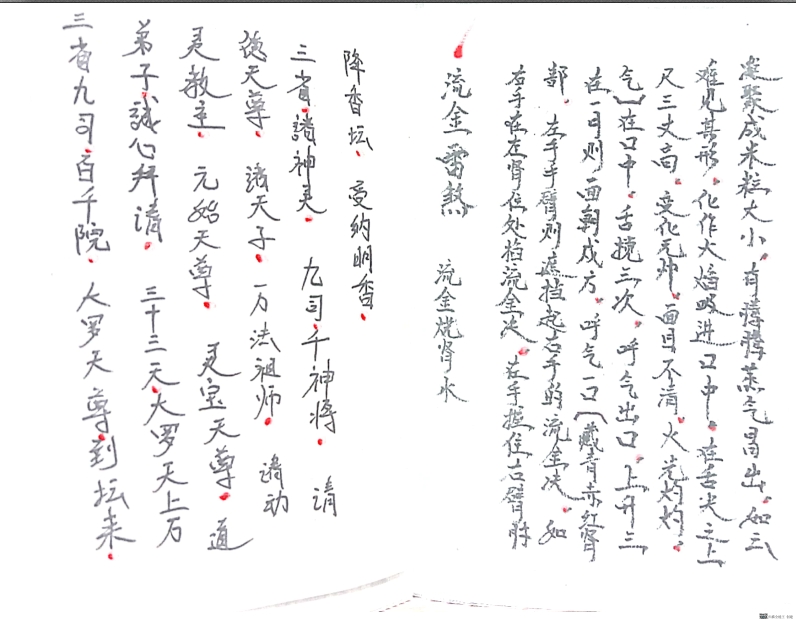 凝聚成米粒大小。有腾腾蒸气冒出。如云
难见其形。化作火焰吸进口中。在舌尖之上
尺三丈高。变化元帅。面目不清。火光灼灼。
气】在口中。舌搅三次。呼气出口。上升三
在一司则面朝成方。呼气一口【藏青赤红肾
部。左手手臂则遮挡起右手的流金决。如
右手在左肾位处掐流金决。左手握住右臂肘
流金雷煞 流金烧肾水
降香坛。受纳明香。
三省诸神灵。九司千神将。请
德天尊。诸天子。一万法祖师。请动
灵教主。元始天尊。灵宝天尊。道
弟子诚心拜请。三十三天大罗天上万
三省九司百千院。大罗天尊到坛来。